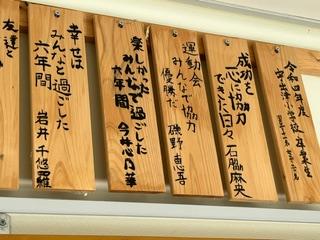 令和四年度
成功を
一心に協力
できた日々 石脇麻央
運動会
みんなで協力
優勝だ 磯野恵吾
楽しかった
みんなで過ごした
六年間 今井心乃華
幸せは
みんなと過ごした
六年間 岩井千悠羅
友達と